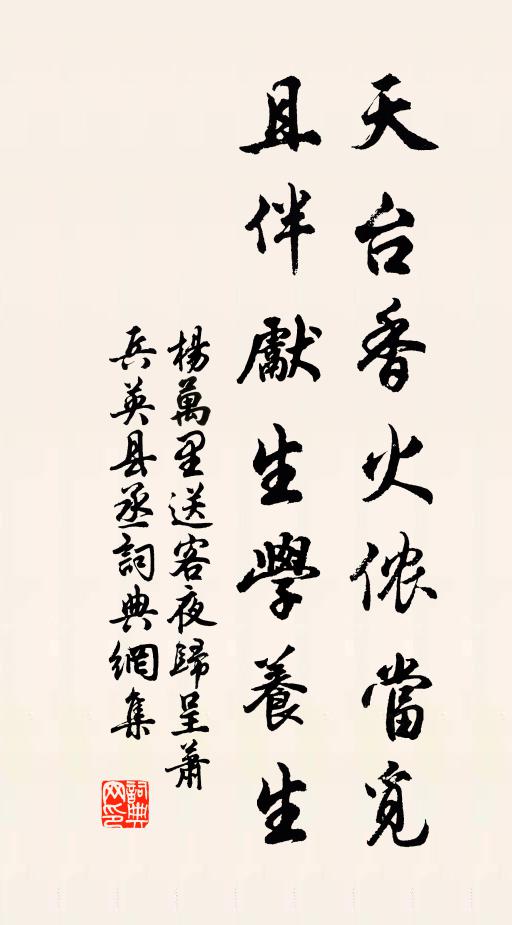 天台香火侬當覓
且伴獻生學養生
楊萬里送客夜歸呈蕭
兵英县丞詞典網集
詞典网印